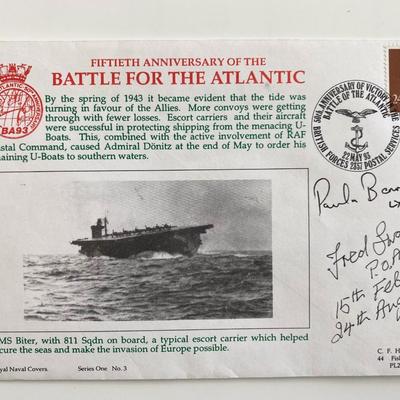 FIFTIETH ANNIVERSARY OF THE
BATTLE FOR THE ATLANTIC
By the spring of 1943 it became evident that the tide was
turning in favour of the Allies. More convoys were getting
through with fewer losses. Escort carriers and their aircraft
were successful in protecting shipping from the menacing U-
Boats. This, combined with the active involvement of RAF
astal Command, caused Admiral Dönitz at the end of May to order his
maining U-Boats to southern waters.
BA93
50th ANNIVERSARY OF VICTORY IN THE
BATTLE OF THE ATLANTIC
22 MAY 93
BRITISH FORCES 2357 POSTAL SERVICES
24
Paula
Fred
P.O.
15th Feb
24th Aug
MS Biter, with 811 Sqdn on board, a typical escort carrier which helped
cure the seas and make the invasion of Europe possible.
yal Naval Covers. Series One No. 3
C. F. H
44 Fis
PL2